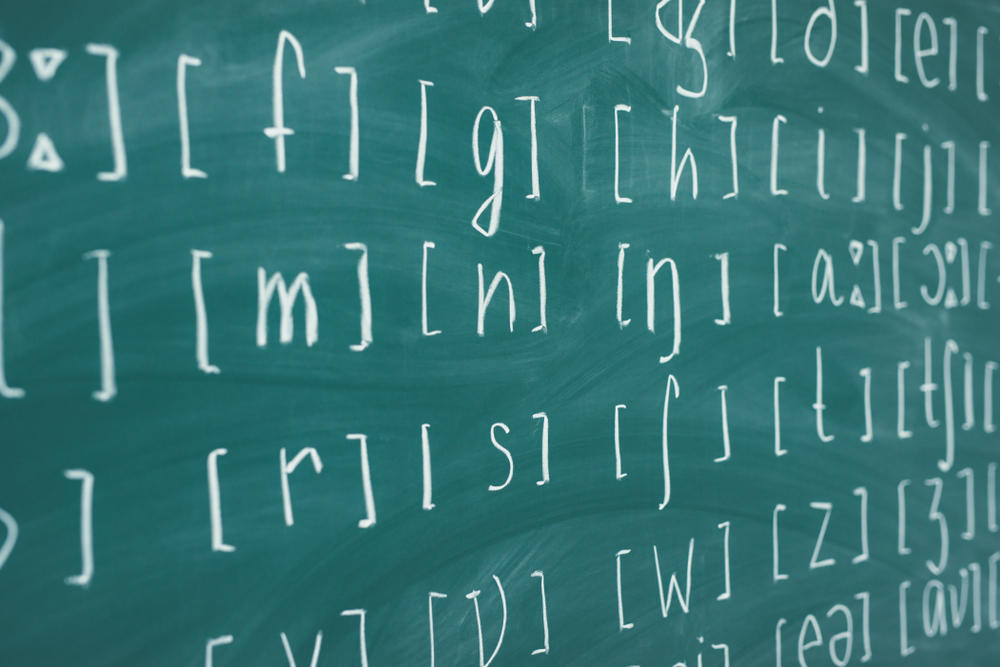 [ʤ] [e]
ː] [f] [g] [h] [i] [j]
[m] [n] [ŋ] [aː] [ɔː]
[r] [s] [ʃ] [t] [tʃ]
[w] [z] [ʒ]
[eə] [aʊ]